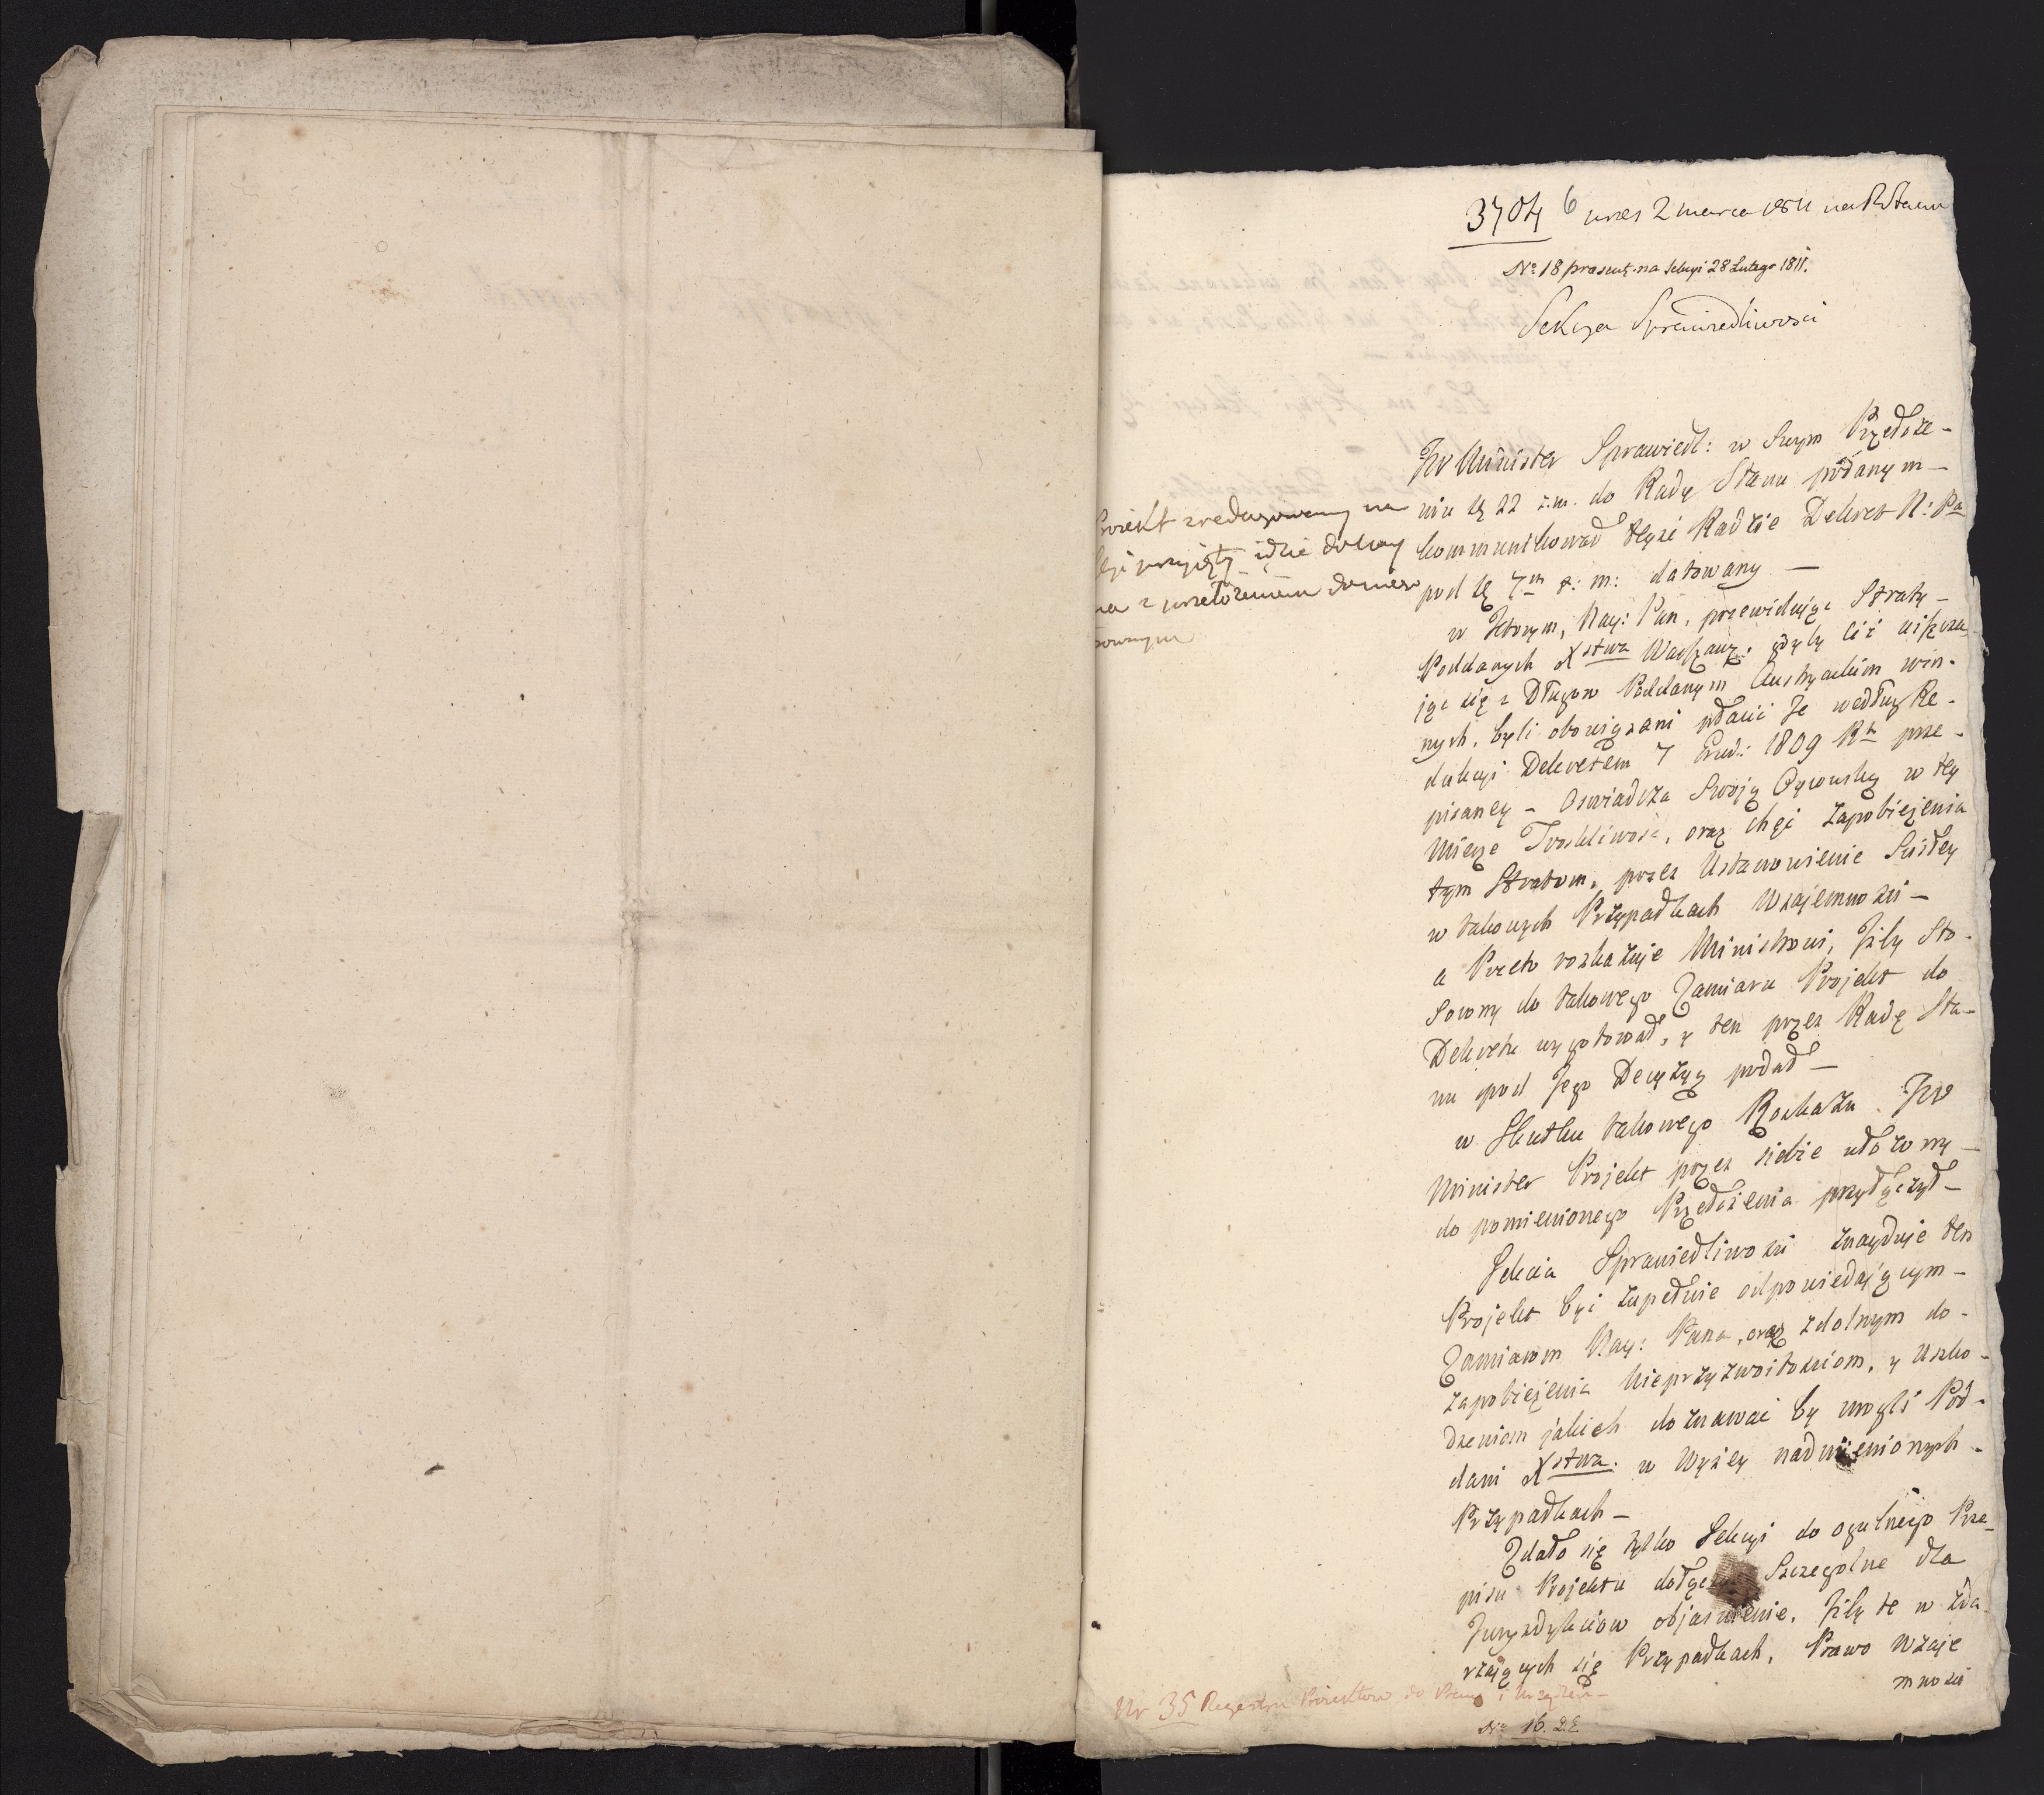 3704 6 wnes 2 marca 1811 na R Stanu
No 18 prasent. na Sekcyi 28 Lutego 1811.
Sekcya Sprawiedliwosci
JW Minister Sprawiedl: w Swym Przedłoże-
niu Dę 22 z.m. do Rady Stanu podanym -
kommunikował teyże Radzie Dekret N: Pa
pod Dę 7m t: m: datowany —
w Którym, Nay: Pan, przewidując Straty -
Poddanych Xstwa Warszaw: gdyby ciż uiszcza
jąc się z Długow Poddanym Austryackim win-
nych, byli obowiązani płacić Je według Re-
dukcyi Dekretem 7 Grud: 1809 Rku prze-
pisaney - Oswiadcza Swoją Oycowską w tey
Mierze Troskliwość, oraz chęć Zapobieżenia
tym Stratom, przez Ustanowienie Scisłey
w takowych Przypadkach Wzajemnosci —
a Przeto rozkazuje Ministrowi, Jżby Sto-
sowny do takowego Zamiaru Projekt do
Dekretu wygotował, y ten przez Radę Sta-
nu pod Jego Decyzyą podał —
w Skutku takowego Rozkazu JW
Minister Projekt przez siebie ułożony —
do pomienionego Przedłożenia przyłączył —
Sekcia Sprawiedliwosci znayduje ten
Projekt być zupełnie odpowiedającym —
Zamiarom Nay: Pana, oraz zdolnym do-
zapobieżenia Nieprzyzwoitosciom, y Uszko-
dzeniom jakich doznawać by mogli Pod-
dani Xstwa. w Wyżey nadmienionych -
Przypadkach —
Zdało się tylko Sekcyi do ogulnego Prze-
pisu Projektu Szczegolne dla
Juryzdykciow objasnienie, Jżby te w zda-
rzających się Przypadkach, Prawo Wzaje
mnosci
Proiekt zredagowany na
przyięty idzie do
na z przełożeniem do
Nr 35 Regestru Proiektow do Praw i Urządzeń -
No 16. D.E.